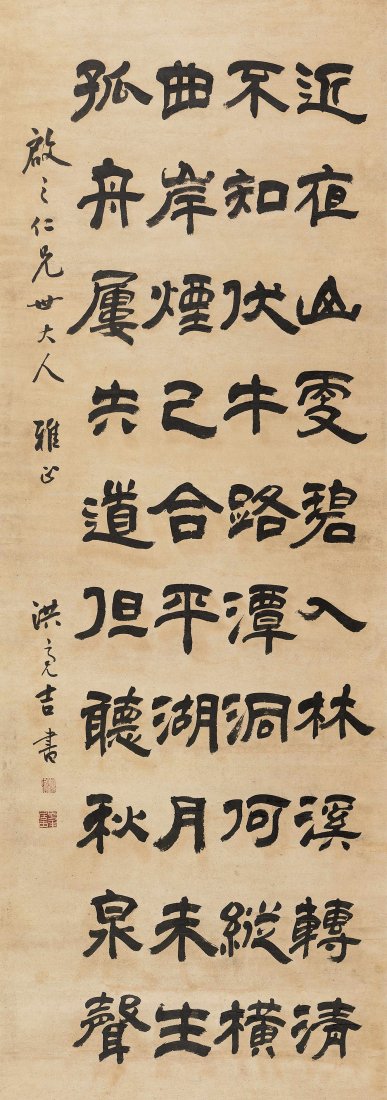 近夜山更碧入林溪轉清
不知伏牛路潭洞何縱橫
曲岸煙已合平湖月未生
孤舟屢失道但聽秋泉聲
啟之仁兄世大人 雅正
洪亮吉書